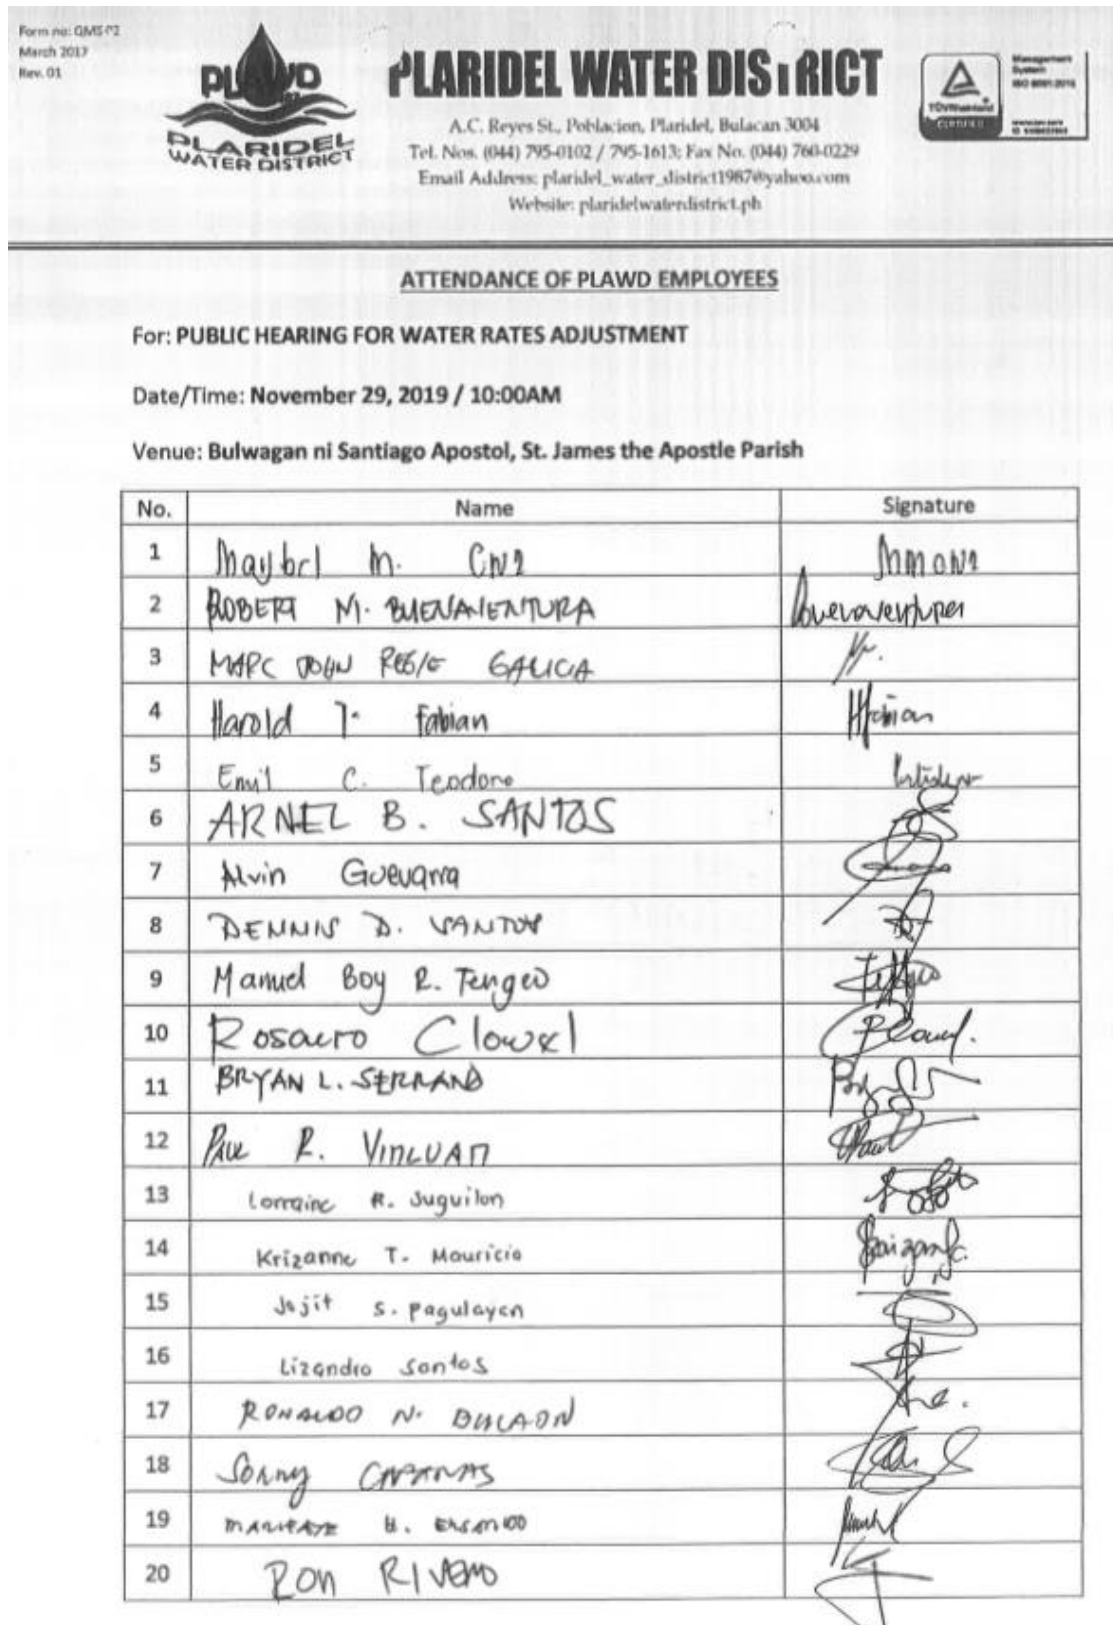 Form no: QMS-P2
March 2017
Rev. 01
PLAWD
PLARIDEL
WATER DISTRICT
PLARIDEL WATER DISTRICT
A.C. Reyes St., Poblacion, Plaridel, Bulacan 3004
Tel. Nos. (044) 795-0102 / 795-1613; Fax No. (044) 760-0229
Email Address: plaridel_water_district1987@yahoo.com
Website: plaridelwaterdistrict.ph
TÜVRheinland
CERTIFIED
Management
System
ISO 9001:2015
ATTENDANCE OF PLAWD EMPLOYEES
For: PUBLIC HEARING FOR WATER RATES ADJUSTMENT
Date/Time: November 29, 2019 / 10:00AM
Venue: Bulwagan ni Santiago Apostol, St. James the Apostle Parish
No. Name Signature
1 Maybel M.
2 ROBERT M. BUENAVENTURA Buenaventura
3 MARC JOHN REGIE GALICIA
4 Harold T. Fabian HFabian
5 Emil C. Teodoro
6 ARNEL B. SANTOS
7 Alvin Guevarra
8 DENNIS D. SANTOS
9 Manuel Boy R. Tengco
10 Rosauro Clowel
11 BRYAN L. SERRANO
12 PAUL R. VINLUAN
13 Lorraine R. Juguilon
14 Krizanne T. Mauricio
15 Jojit S. Pagulayan
16 Lizandro Santos
17 RONALDO N. BULAON
18 Sonny CAPANAS
19 H.
20 RON RIVERO